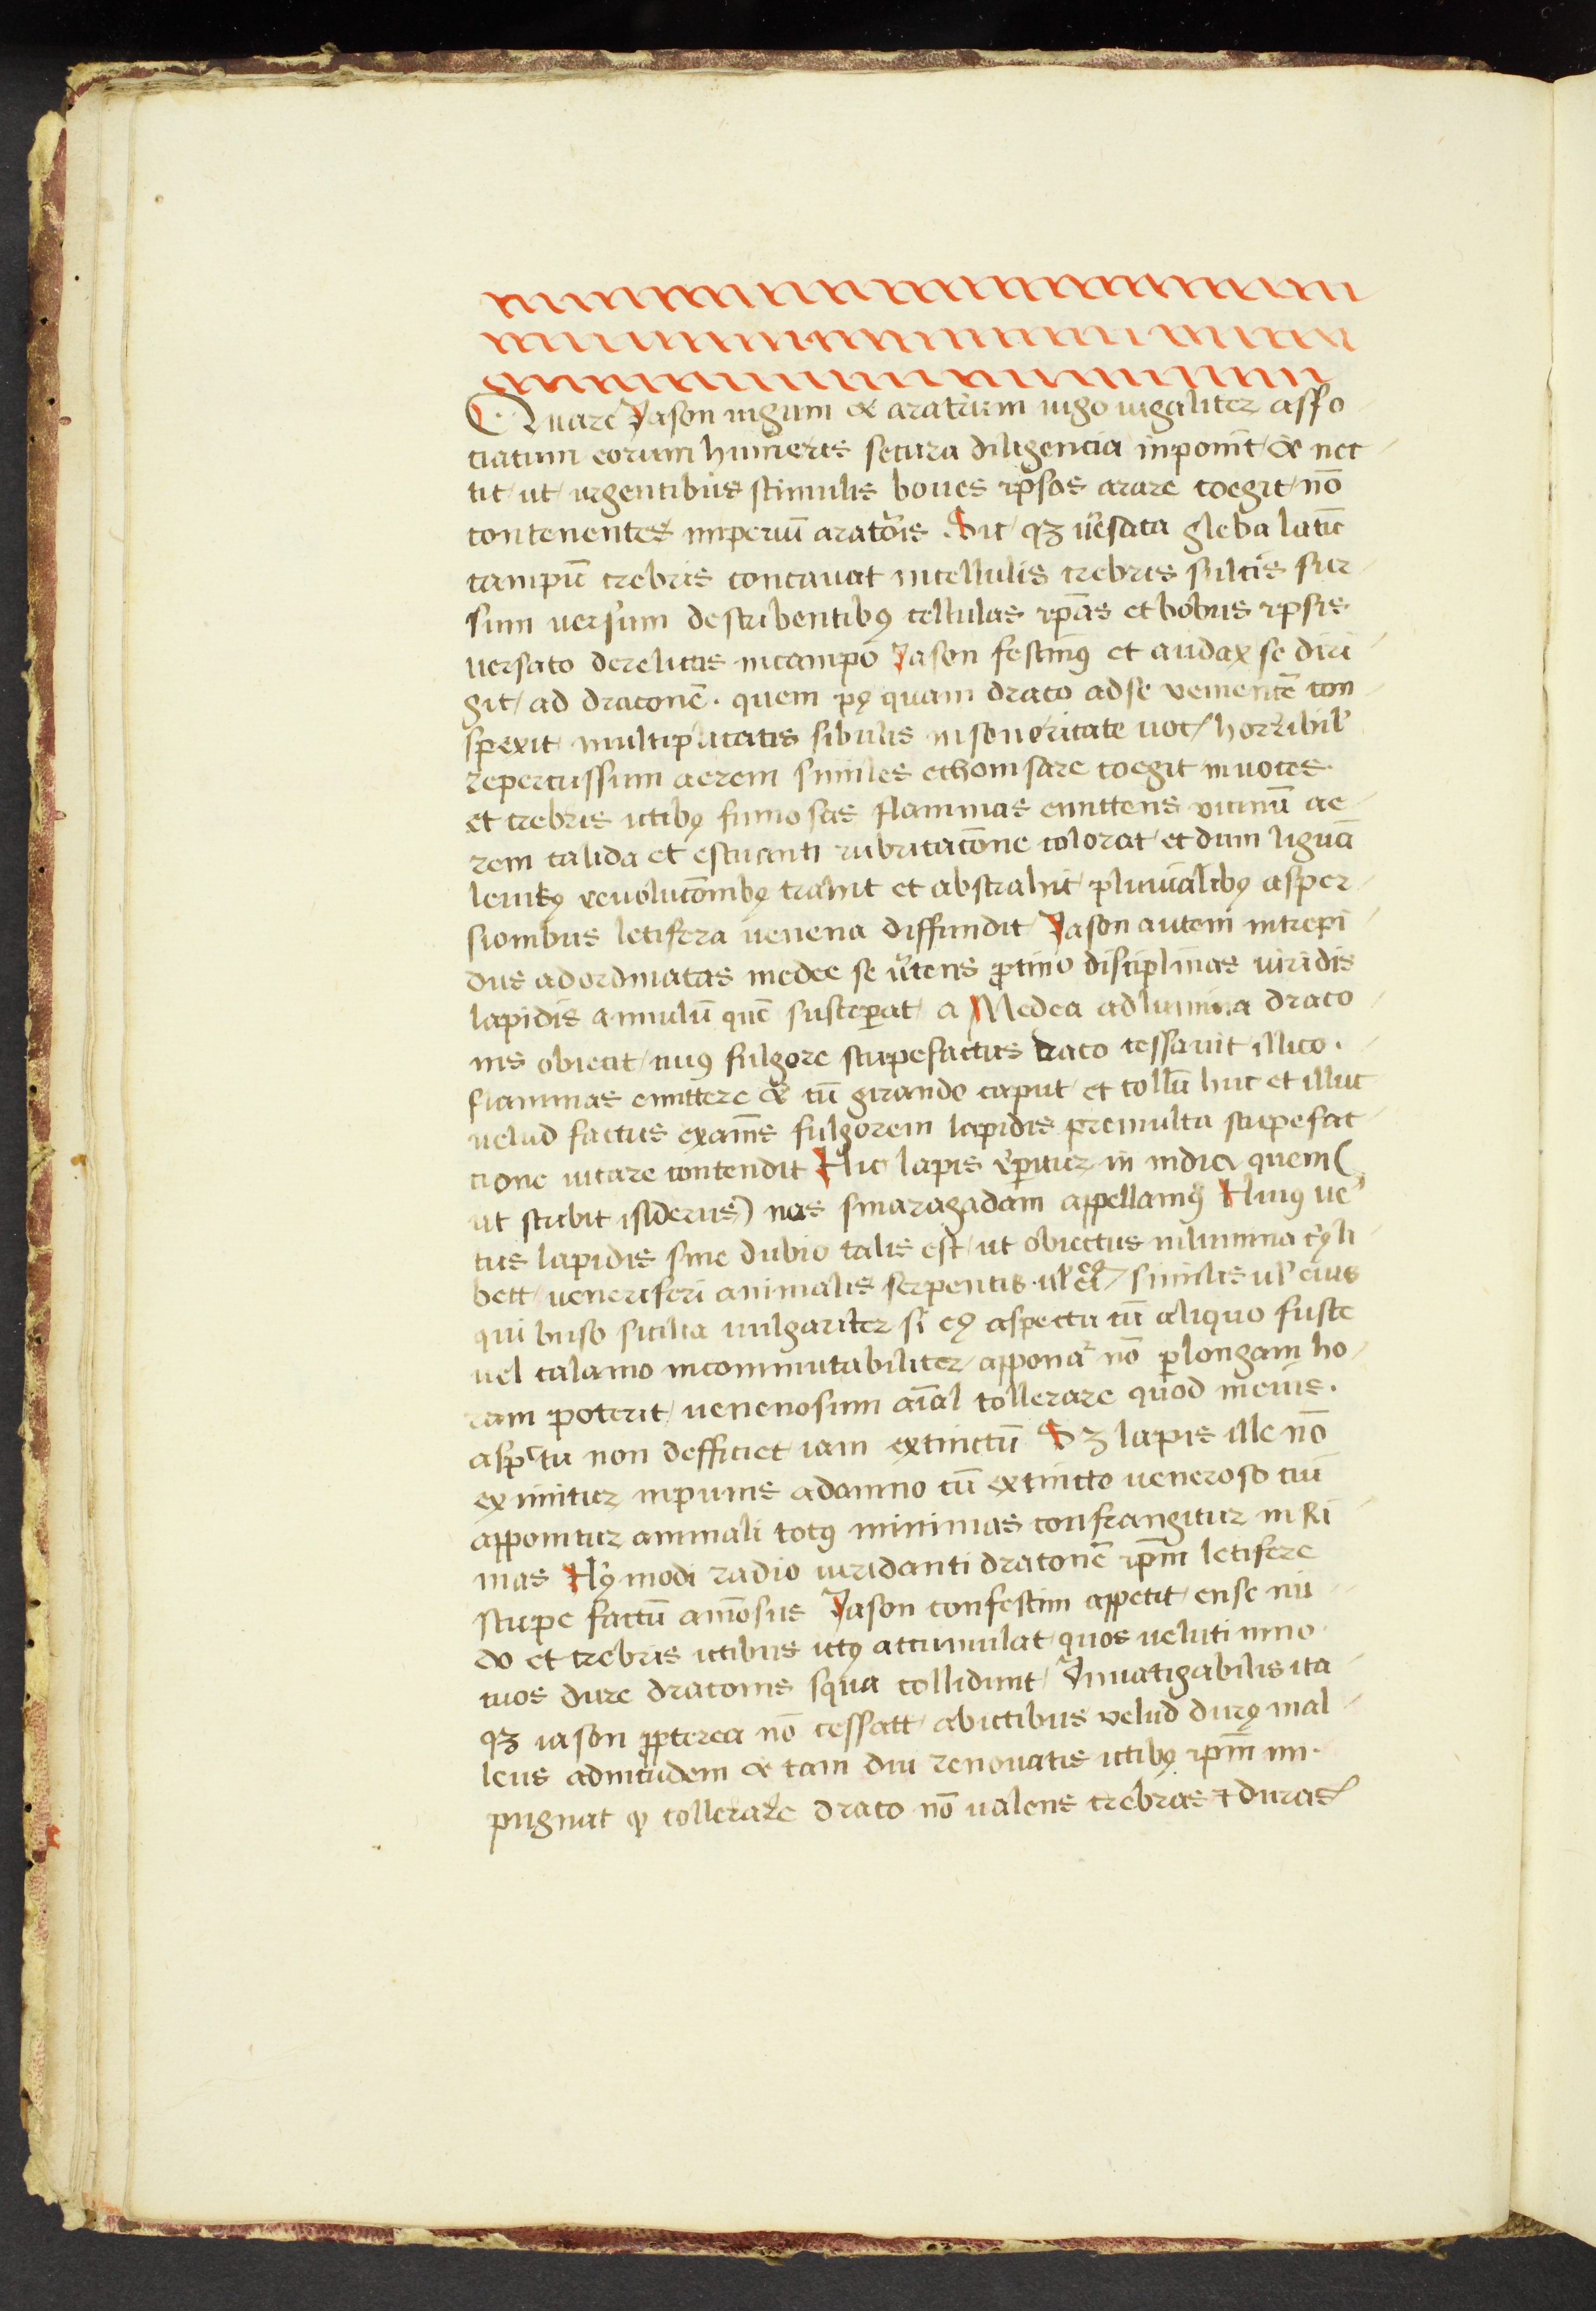 Quare Jason iugum & aratrum iugo iugaliter asso
ciatum eorum humeris secura diligencia inponit & nec
tit ut urgentibus stimulis boues ipsos arare coegit nō
contenentes imperiū aratoris . Sic qʒ u͛sata gleba latū
campū crebris concauat in cellulis crebris sulcis sur
sum uersum describentibꝯ cellulas ip̄as et bobus ipsis
uersato derelictis in campo Jason festinꝯ et audax se diri
git ad draconē . quem pꝯ quam draco ad se uenientē con
spexit multiplicatis sibulis in soneritate uoc horribil
repercussum aerem similes echonisare coegit in uoces .
et crebris ictibꝯ fumosas flammas emittens vicinū ae
rem calida et estuanti rubricatōne colorat et dum liguā
leuitꝯ reuolutōnibꝯ trahit et abstrahit pluuialibꝯ asper
sionibus letifera uenena diffundit Jason autem intrepi
dus ad ordinatas medee se u͛tens ꝓtino disciplinas uiridis
lapidis annulū quē susceꝑat a Medea ad lumina draco
nis obiecit cuiꝯ fulgore stupefactus draco cessauit illico .
flammas emittere & cū girando caput et collū huc et illuc
uelud factus exāis fulgorem lapidis premulta stupefac
tione uitare contendit Hic lapis re͛ꝑitur in india quem (
ut scribit isiderus) nos smaragadam appellamꝯ Huiꝯ ue
tus lapidis sine dubio talis est ut obiectus in lumina cꝯli
bett ueneriferi animalis serpentis ul similis ul eius
qui buso sicilia uulgariter si eꝯ aspectu cū aliquo fuste
uel calamo incommutabiliter apponaᷣ nō ꝑlongam ho
ram poterit uenenosum aīal tollerare quod in eius .
asp̄ctu non defficiet iam extinctū Sʒ lapis ille nō
eximitur inpunis a damno cū extincto ueneroso cui
apponitur animali totꝯ minimas confrangitur in Ri
mas Hꝯ modi radio uiridanti draconē ip̄m letifere
stupe factū aīosus Jason confestim appetit ense nu
do et crebris ictibus ictꝯ accumulat quos veluti inno
cuos dure draconis squa collidunt Inuatigabilis ita
qʒ iason ꝓpterea nō cessatt ab ictibus velud durꝯ mal
leus ad incudem & tam diu renouatis ictibꝯ ip̄m im .
pugnat ꝙ tollerare draco nō ualens crebras ⁊ duras